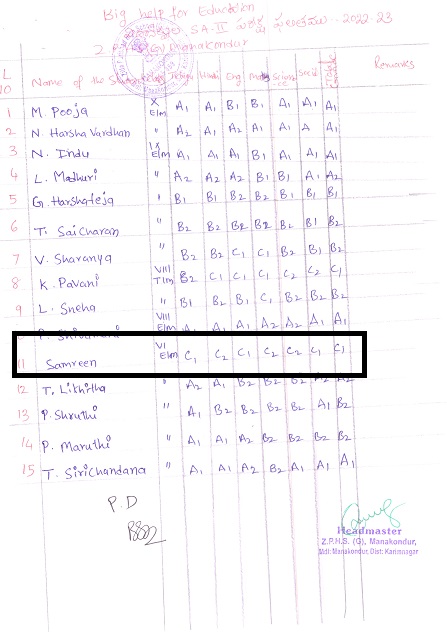 Big help for Education
SA-II 2022-23
Z.P.H.S (G) Manakondur
SL NO Name of the Student Class Telugu Hindi Eng Maths Science Social Grade Remarks
1 M. Pooja X E/m A1 A1 B1 B1 A1 A1 A1
2 N. Harsha Vardhan " A2 A1 A2 A1 A1 A A1
3 N. Indu IX E/m A1 A1 A1 B1 A1 A1 A1
4 L. Madhuri " A2 A2 A2 B1 B1 A1 A2
5 G. Harshateja " B1 B1 B2 B2 B1 B1 B1
6 T. Saicharan " B2 B2 B2 B2 B2 B1 B2
7 V. Sharanya " B2 B2 C1 C1 B1 B2 B2
8 K. Pavani VIII T/m B2 C1 C1 C1 C1 C2 C1
9 L. Sneha " B1 B2 B1 C1 B2 B2 B2
VIII E/m A1 A1 A1 A2 A2 A1 A1
11 Samreen VI E/m C1 C2 C1 C2 C2 C1 C1
12 T. Likhitha " A2 A1 B2 B2 B2
13 P. Shruthi " A1 B2 B2 B2 B2 A1 B2
14 P. Maruthi " A1 A2 A2 B2 B2 B2 B2
15 T. Sirichandana " A1 A1 A2 B2 A1 A1 A1
P.D
Headmaster
Z.P.H.S. (G), Manakondur,
Mdl: Manakondur, Dist: Karimnagar